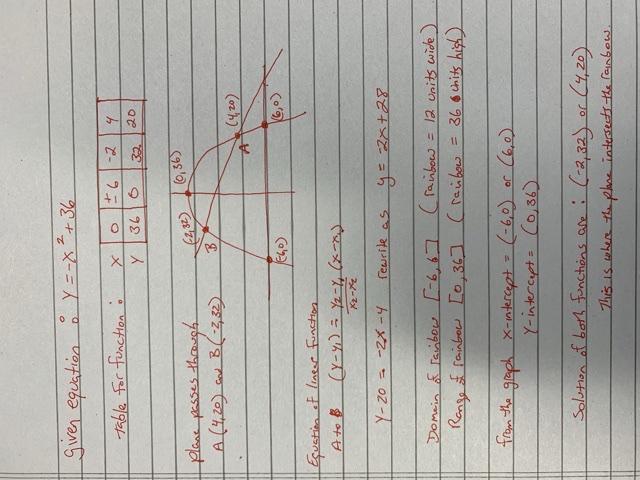 given equation : y = -x² + 36
Table for function :
X 0 ±6 -2 4
Y 36 0 32 20
plane passes through
A (4,20) and B (-2,32)
(0,36)
(-2,32)
B
(4,20)
A
(-6,0)
(6,0)
Equation of linear function
A to B (y-y₁) = y₂-y₁ (x-x₁)
x₂-x₂
y-20 = -2x-4 rewrite as y = -2x+28
Domain of rainbow [-6,6] (rainbow = 12 units wide)
Range of rainbow [0,36] (rainbow = 36 units high)
from the graph x-intercept = (-6,0) or (6,0)
Y-intercept = (0,36)
Solution of both functions are : (-2,32) or (4,20)
This is where the plane intersects the rainbow.